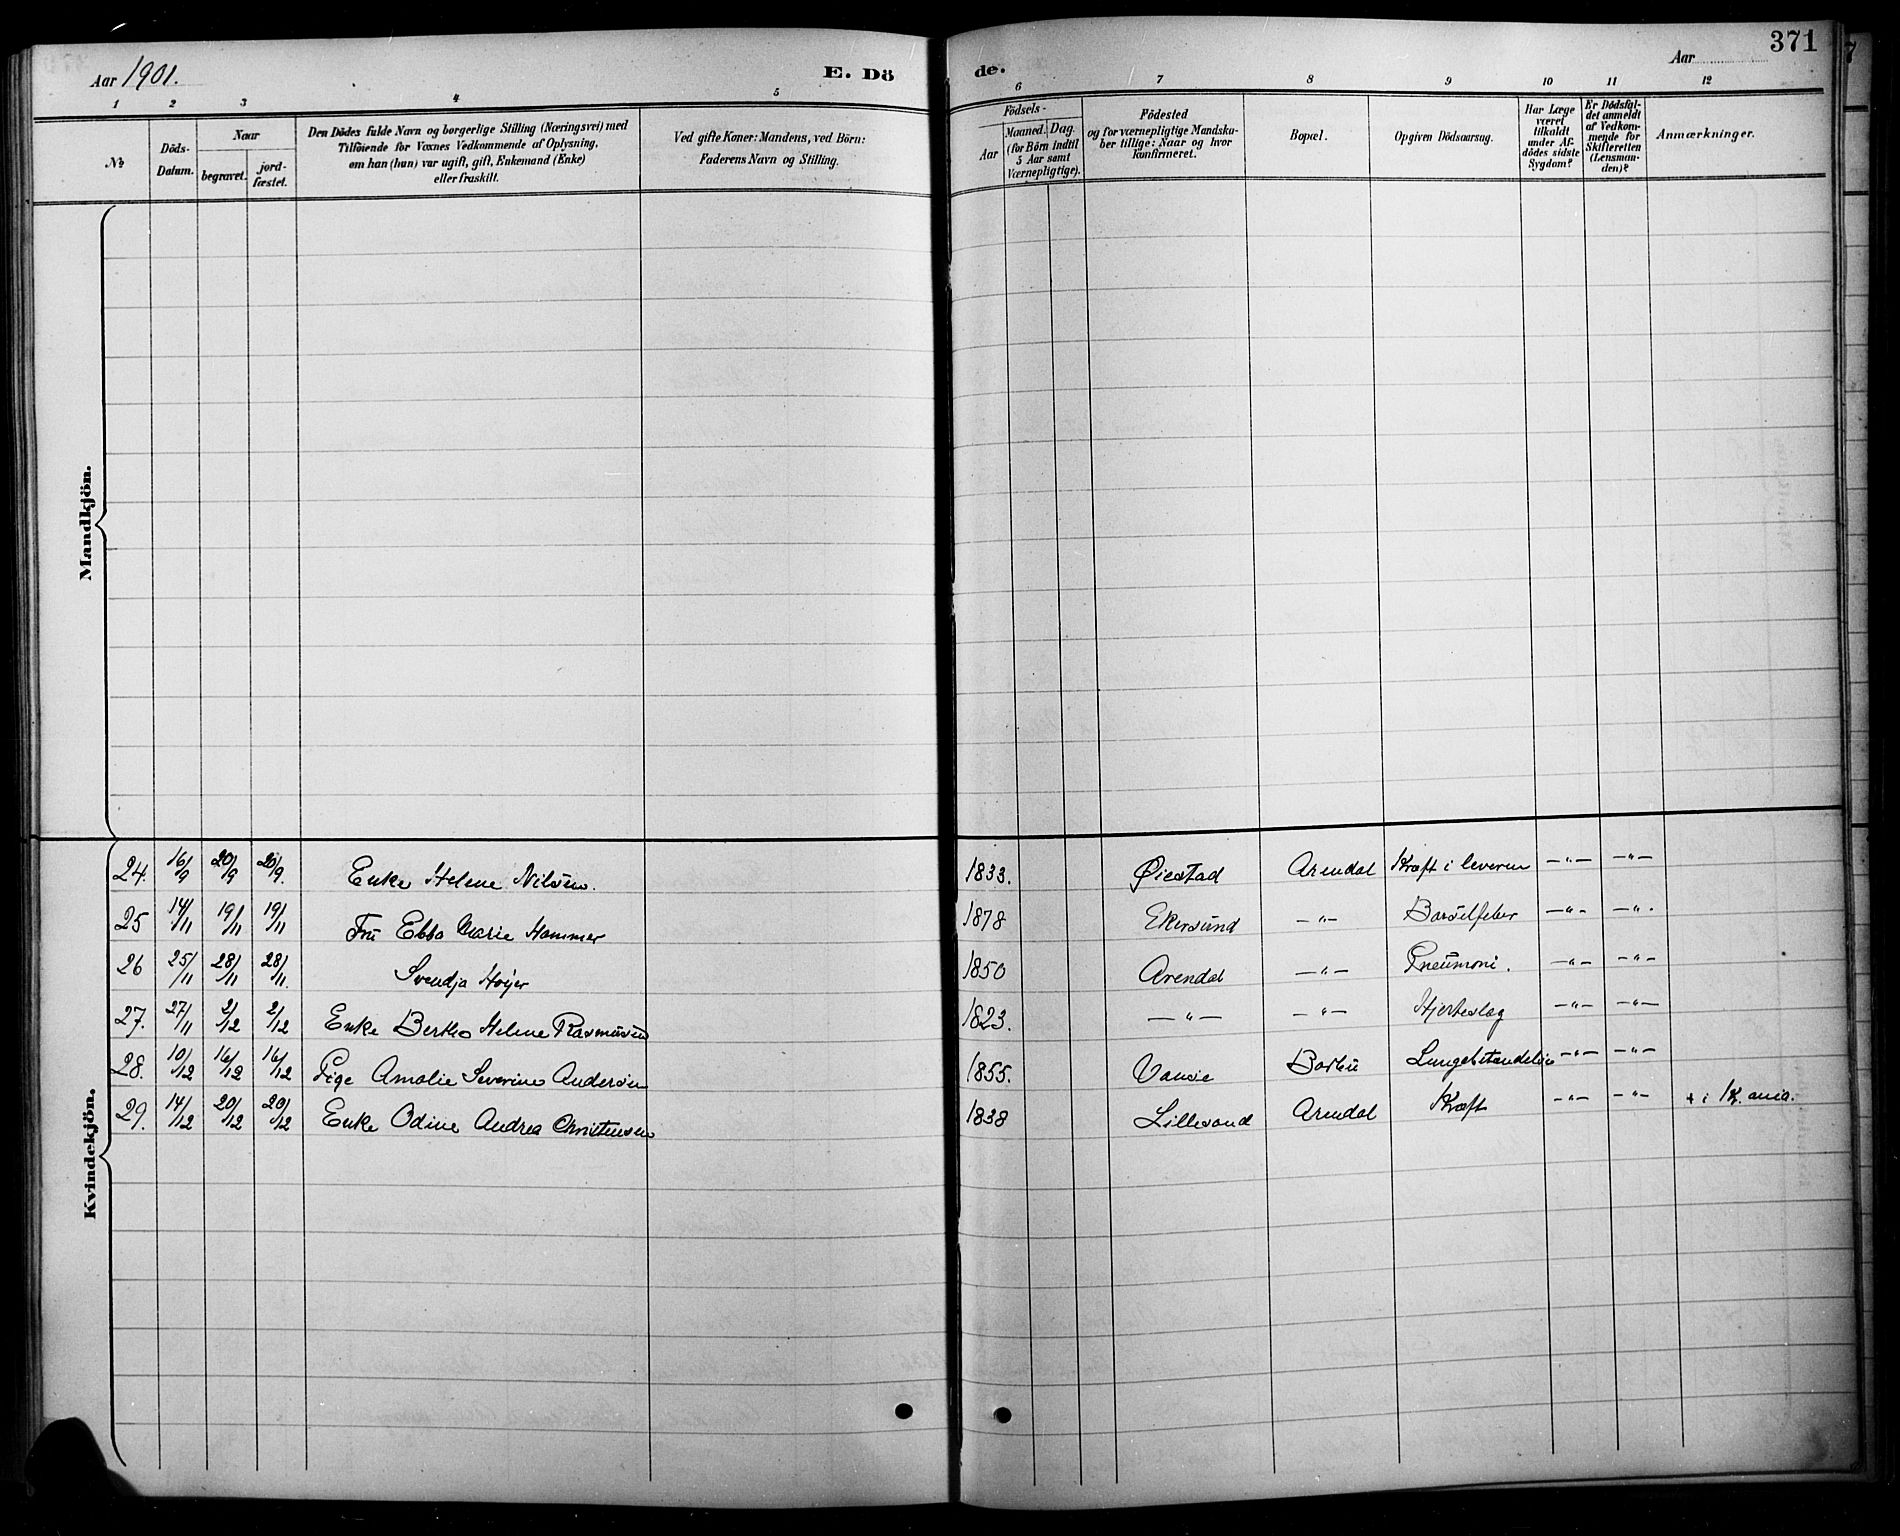 Aar 1901.
E. Dö
de.
Aar
371
1 2 3 4 5 6 7 8 9 10 11 12
№
Döds-
Datum.
Naar
begravet.
jord-
fæstet.
Den Dödes fulde Navn og borgerlige Stilling (Næringsvei) med
Tilföiende for Voxnes Vedkommende af Oplysning,
om han (hun) var ugift, gift, Enkemand (Enke)
eller fraskilt.
Ved gifte Koner: Mandens, ved Börn:
Faderens Navn og Stilling.
Födsels-
Aar
Maaned. Dag.
(for Börn indtil
5 Aar samt
Værnepligtige).
Födested
og for værnepligtige Mandska-
ber tillige: Naar og hvor
konfirmeret.
Bopæl.
Opgiven Dödsaarsag.
Har Læge
været
tilkaldt
under Af-
dödes sidste
Sygdom?
Er Dödsfal-
det anmeldt
af Vedkom-
mende for
Skifteretten
(Lensman-
den)?
Anmærkninger.
Mandkjön.
Kvindekjön.
24. 16/9 20/9 20/9. Enke Helene Nilsen. 1833. Øiestad Arendal Kræft i leveren —"— —"—
25 14/11 19/11 19/11 Fru Ebba Marie Hammer 1878 Ekersund —"— Barselfeber —"— —"—
26 25/11 28/11 28/11. Svendja Høyer 1850 Arendal —"— Pneumoni. —"— —"—
27. 27/11 2/12 2/12 Enke Bertha Helene Rasmusen 1823. —"— —"— Hjerteslag —"— —"—
28. 10/12 16/12 16/12 Pige Amalie Severine Andersen 1855. Vanse Barbu —"— —"—
29. 14/12 20/12 20/12 Enke Odine Andrea Christensen 1838 Lillesand Arendal Kræft —"— —"— + i Kr.ania.